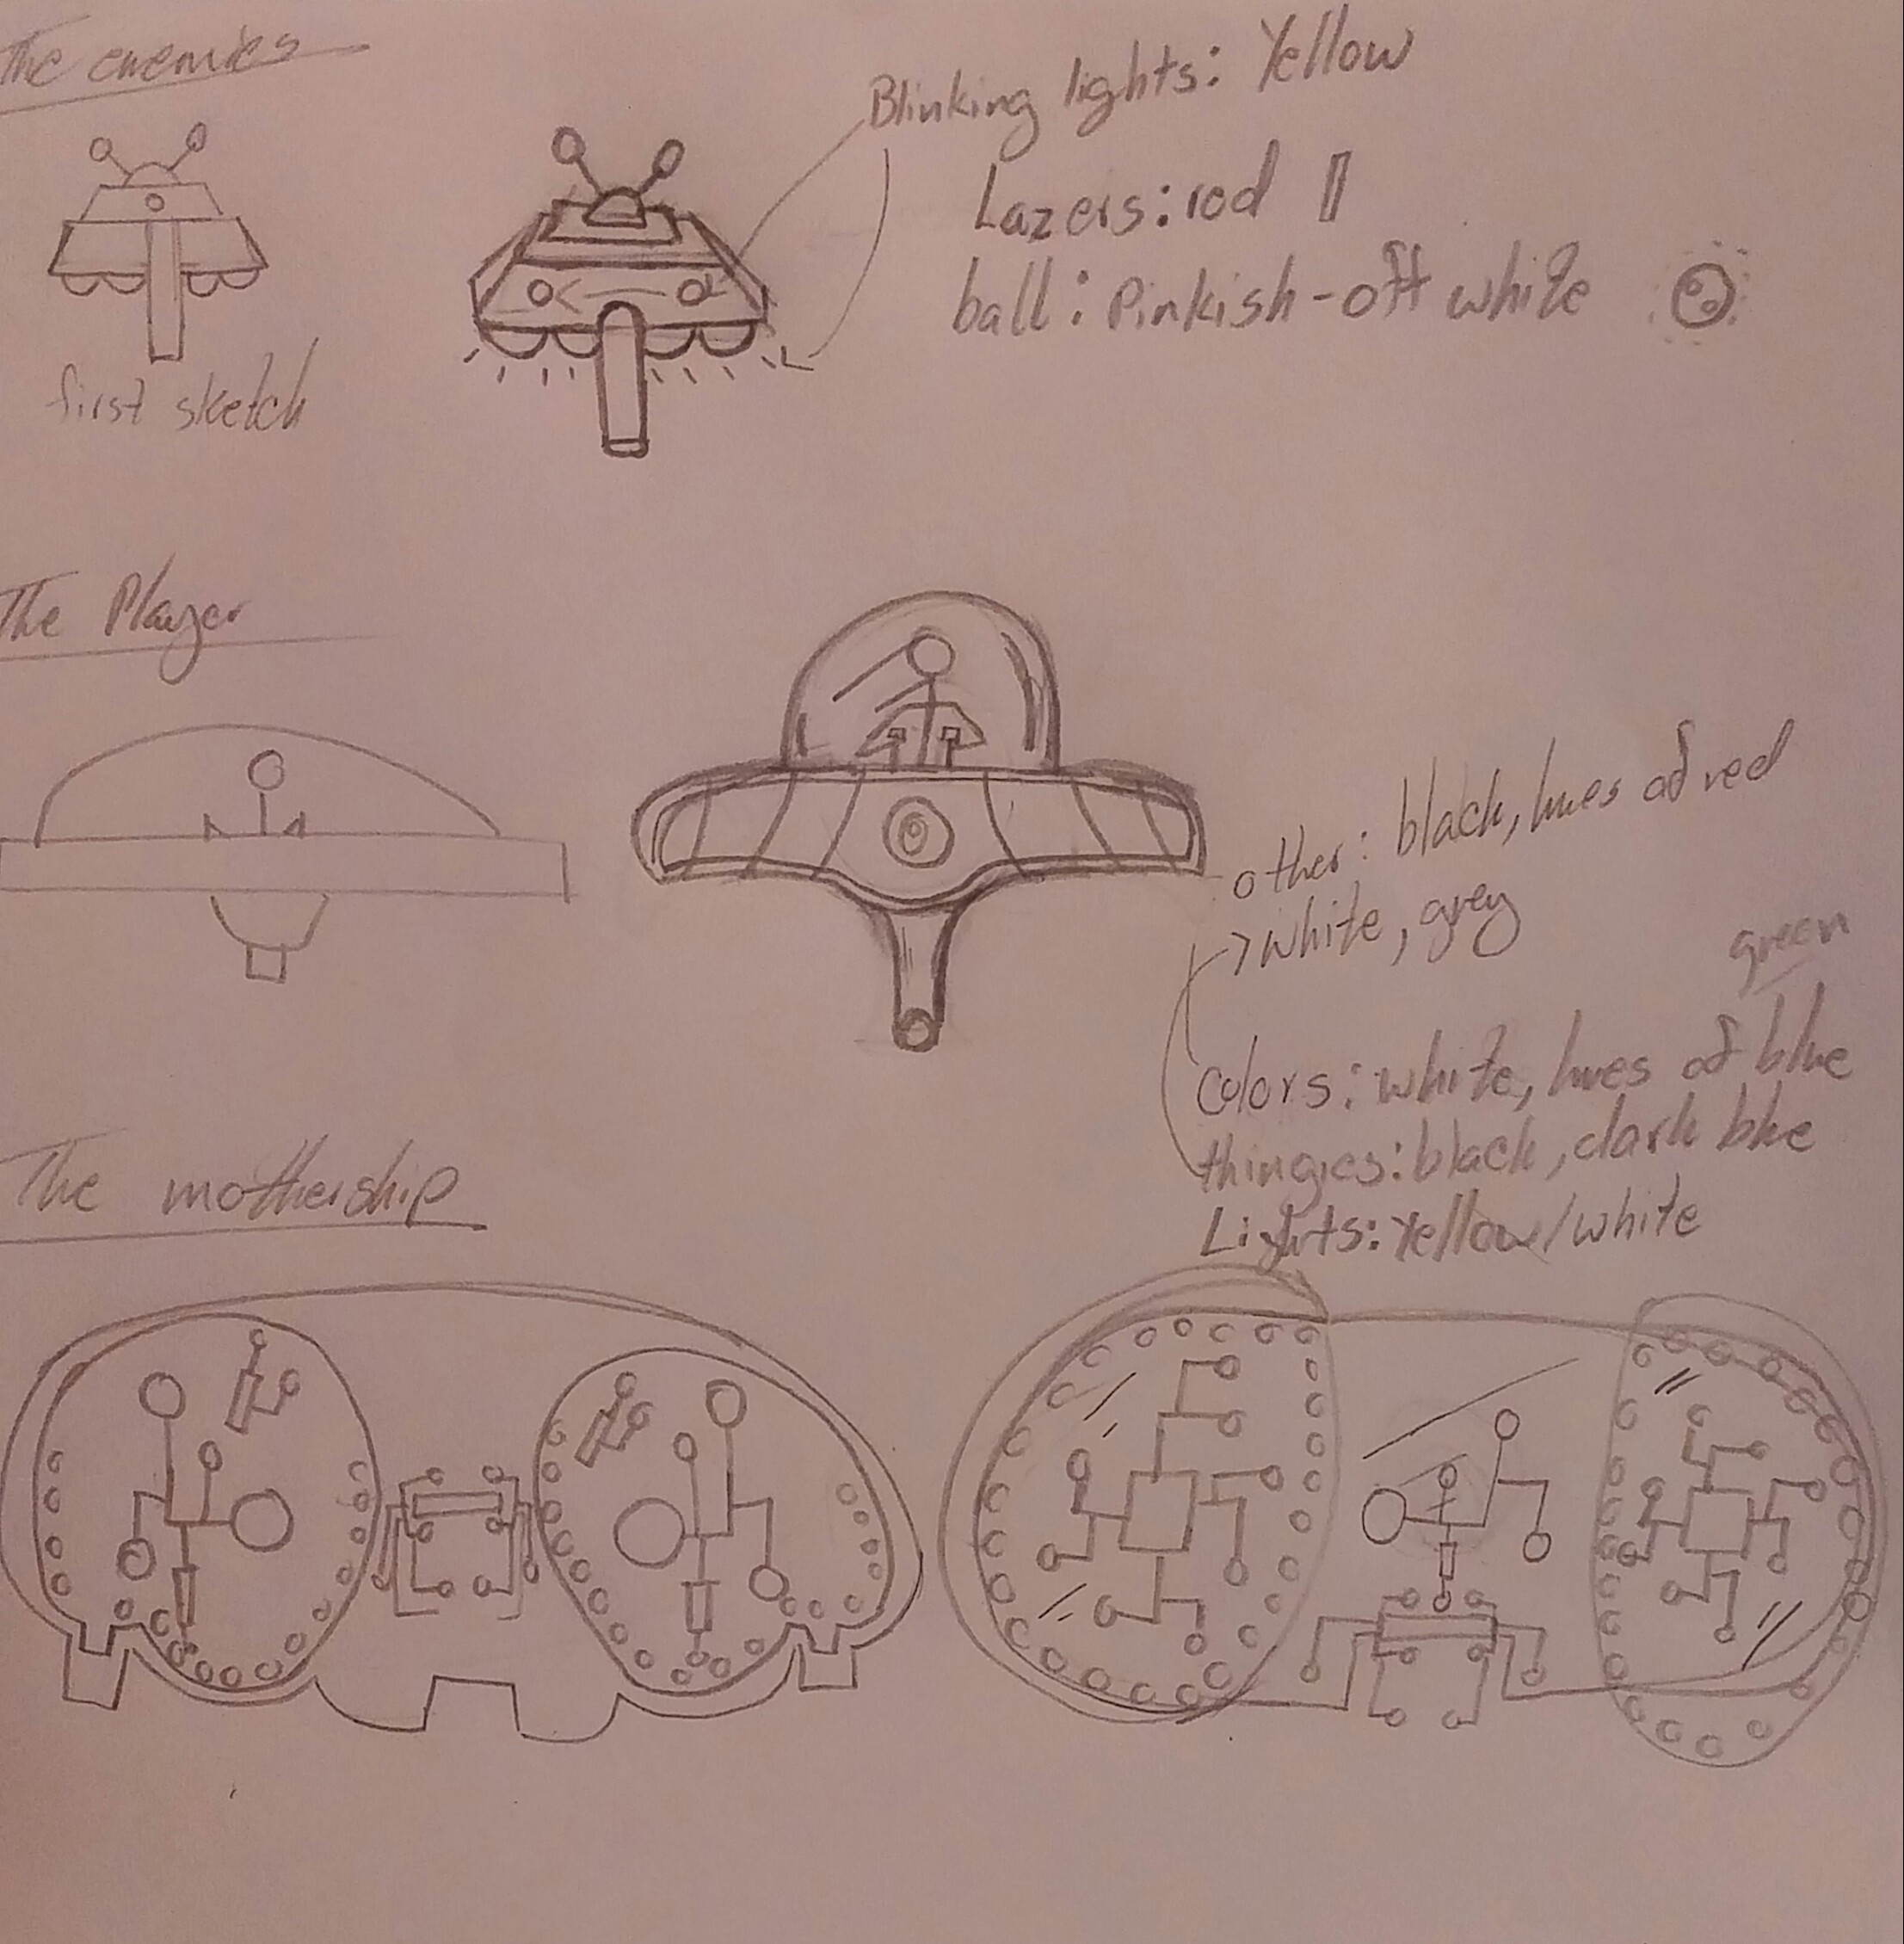 The enemies
Blinking lights: Yellow
Lazers: red
ball: Pinkish-off white
first sketch
The Player
other: black, hues of red
>white, grey
green
Colors: white, hues of blue
thingies: black, dark blue
Lights: Yellow/white
The mothership